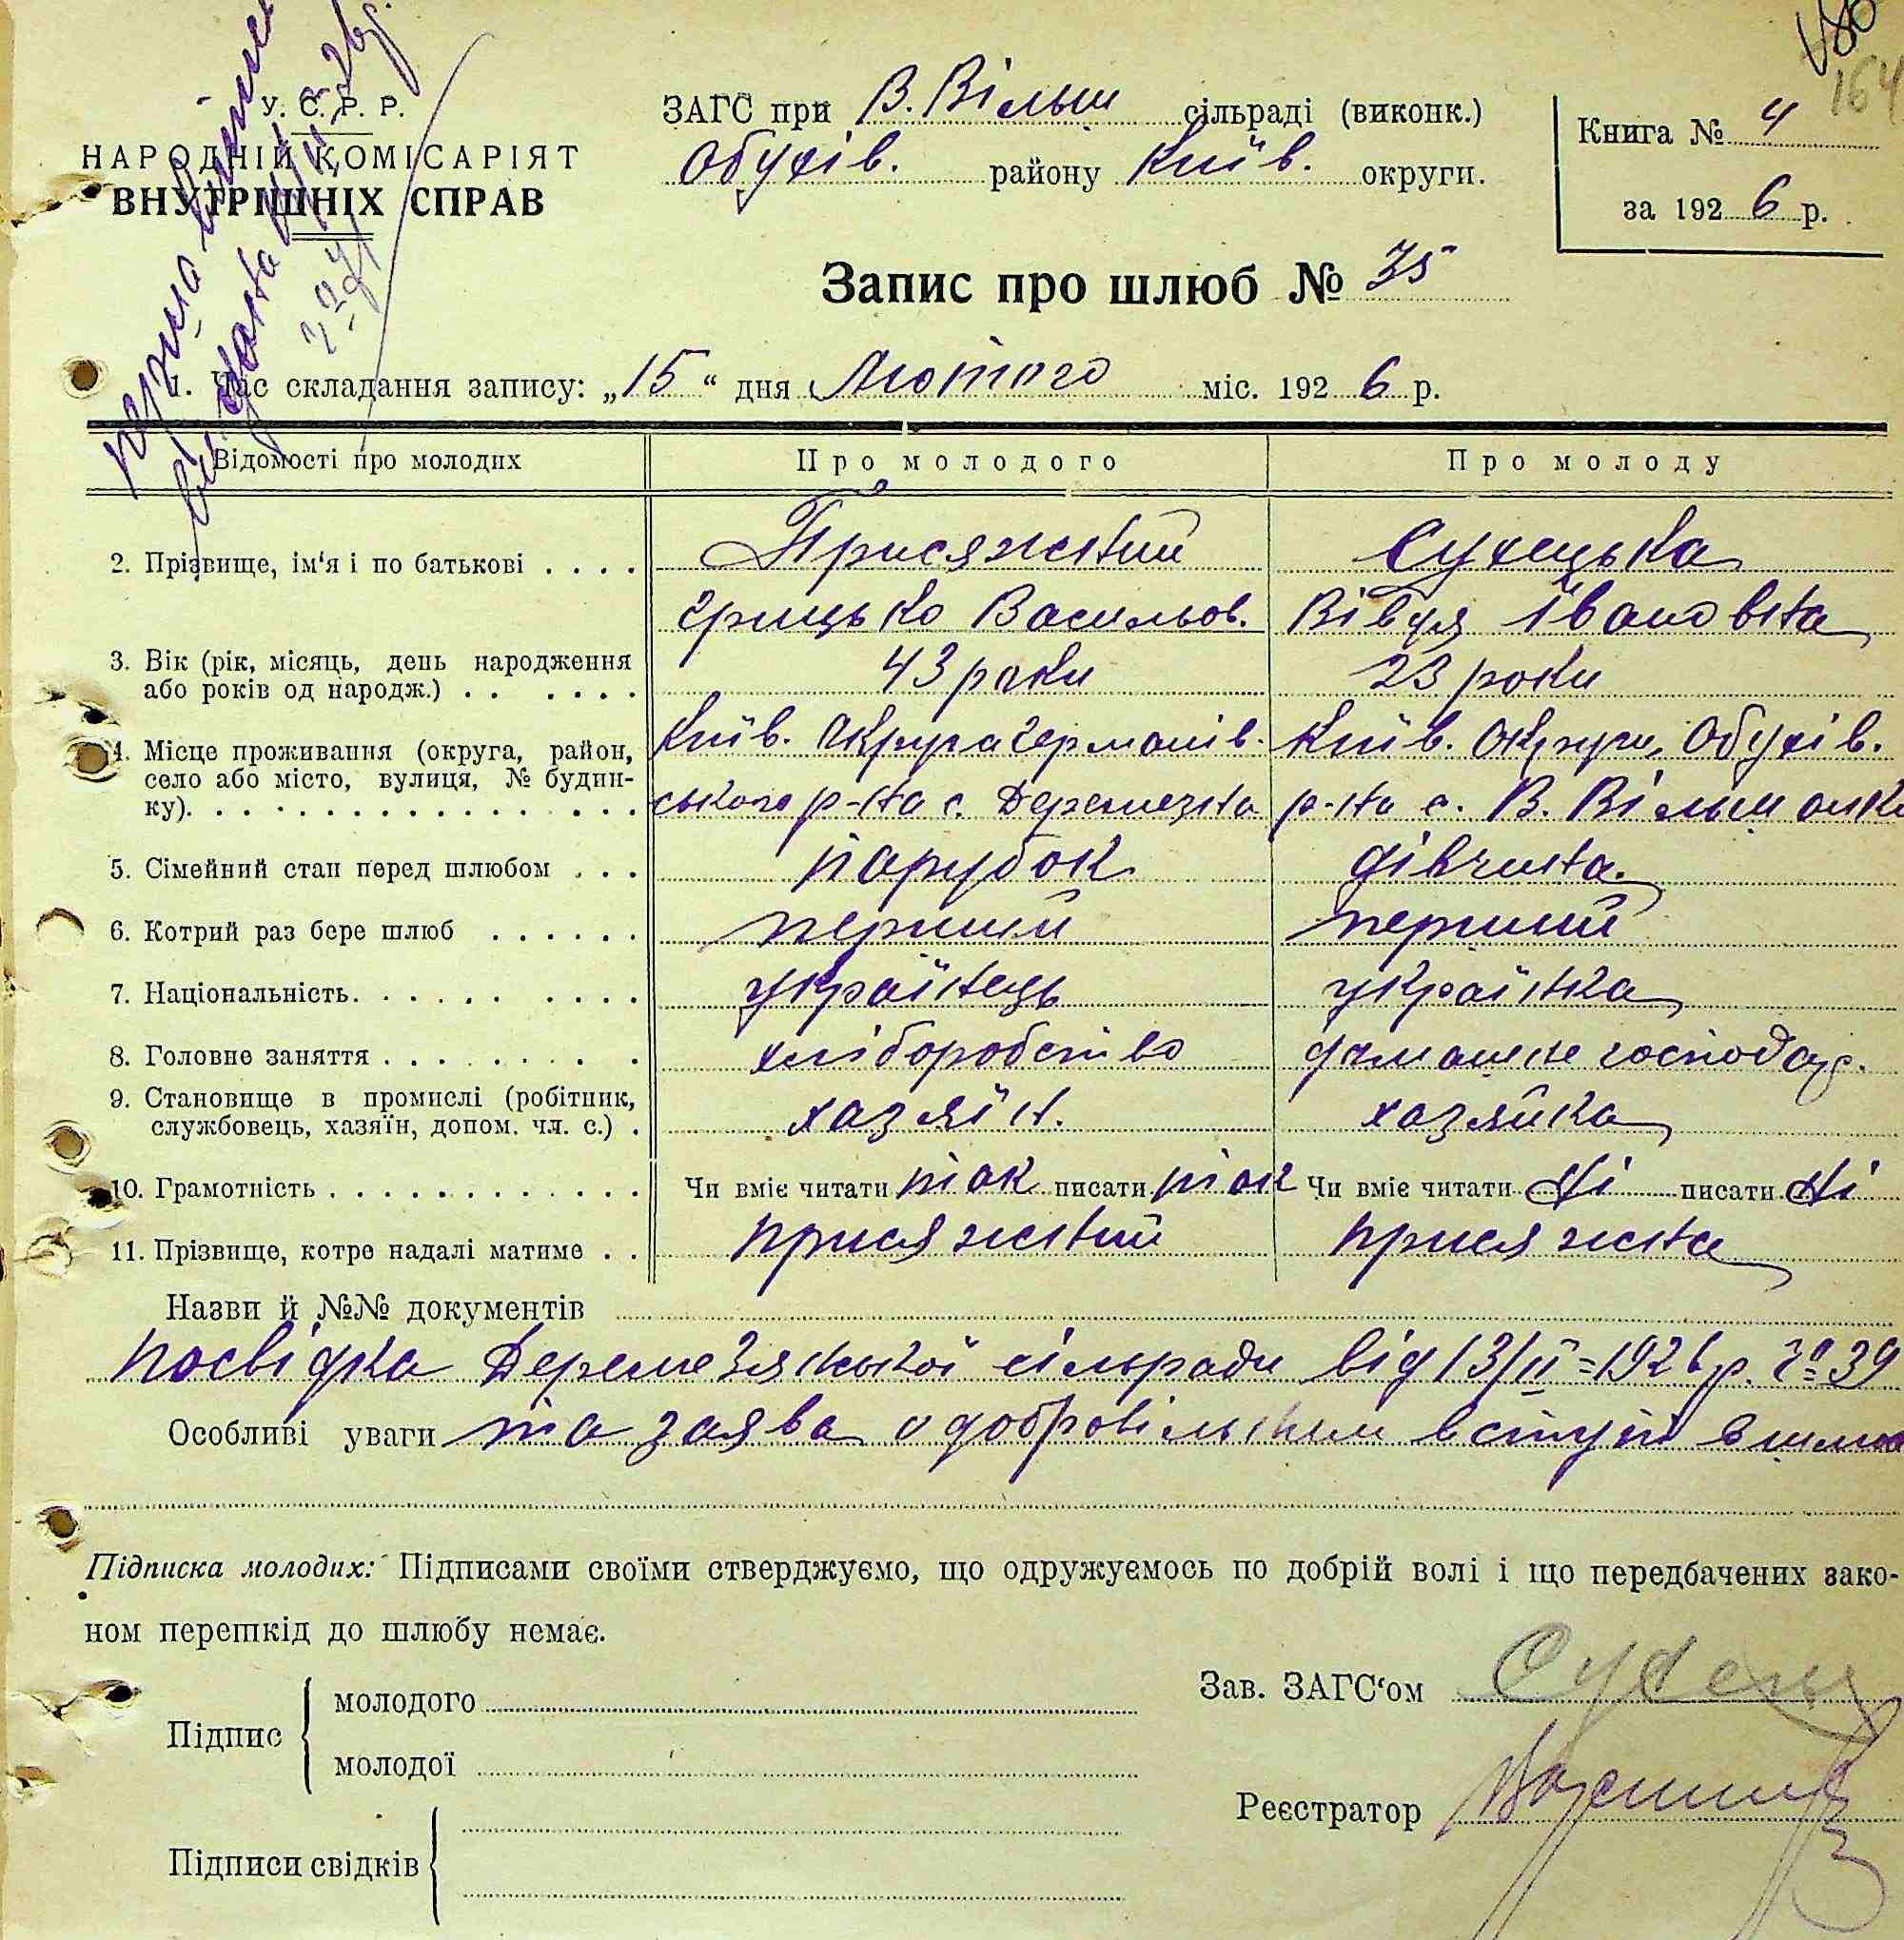 У. С. Р. Р.
НАРОДНІЙ КОМІСАРІЯТ
ВНУТРІШНІХ СПРАВ
ЗАГС при В. Вільш сільраді (виконк.)
Обухів. району Київ. округи.
Книга № 4
за 1926 р.
164
Запис про шлюб № 35
1. Час складання запису: „15“ дня Лютого міс. 1926 р.
Відомості про молодих Про молодого Про молоду
2. Прізвище, ім‘я і по батькові . . . . Присяжний Сухецька
Грицько Васильов. Вівдя Івановна
3. Вік (рік, місяць, день народження
або років од народж.) . . . . . . 43 роки 23 роки
4. Місце проживання (округа, район, Київ. Округа Германів- Київ. Округи, Обухів.
село або місто, вулиця, № будин-
ку). . . . . . . . . . . . . . . . ського р-на с. Деремезна р-на с. В. Вільшанка
5. Сімейний стан перед шлюбом . . . парубок дівчина.
6. Котрий раз бере шлюб . . . . . . перший перший
7. Національність. . . . . . . . . . українець українка
8. Головне заняття . . . . . . . . хліборобство домашнє господар.
9. Становище в промислі (робітник,
службовець, хазяїн, допом. чл. с.) . хазяїн. хазяйка
10. Грамотність . . . . . . . . . . . . . Чи вміє читати так писати так Чи вміє читати Ні писати Ні
11. Прізвище, котре надалі матиме . . Присяжний Присяжна
Назви й №№ документів
посвідка Деремезянської сільради від 13/II=1926 р. № 39
Особливі уваги та заява о добровільнім вступі в шлюб
Підписка молодих: Підписами своїми стверджуємо, що одружуємось по добрій волі і що передбачених зако-
ном перешкід до шлюбу немає.
Зав. ЗАГС‘ом
Підпис
молодого
молодої
Реєстратор
Підписи свідків